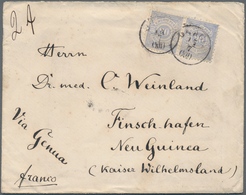 Herrn
Dr. med. C. Weinland
Finschhafen
Neu Guinea
(Kaiser Wilhelmsland)
Via Genua
franco